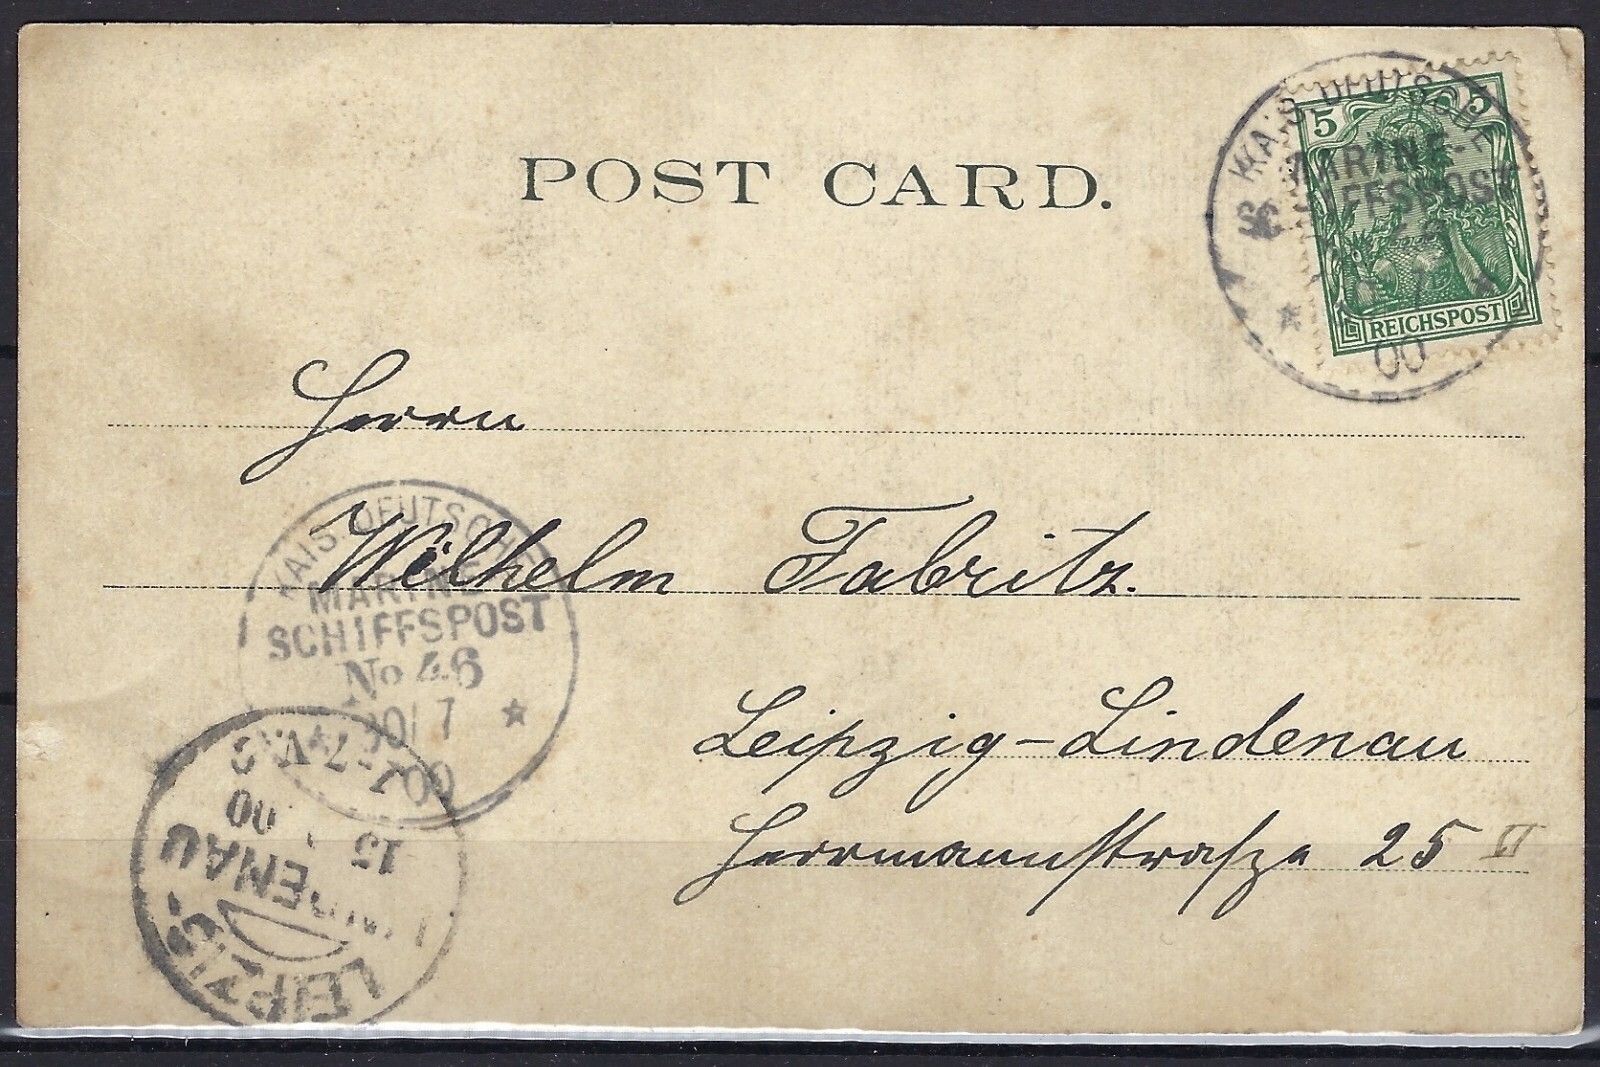 POST CARD.
5 5
REICHSPOST
KAIS. DEUTSCHE
MARINE-
SCHIFFSPOST
00
Herrn
Wilhelm Fabritz.
Leipzig-Lindenau
Herrmannstrasze 25 II
KAIS. DEUTSCHE
MARINE-
SCHIFFSPOST
No 46
7
00
LEIPZIG-
LINDENAU
15
00
7-